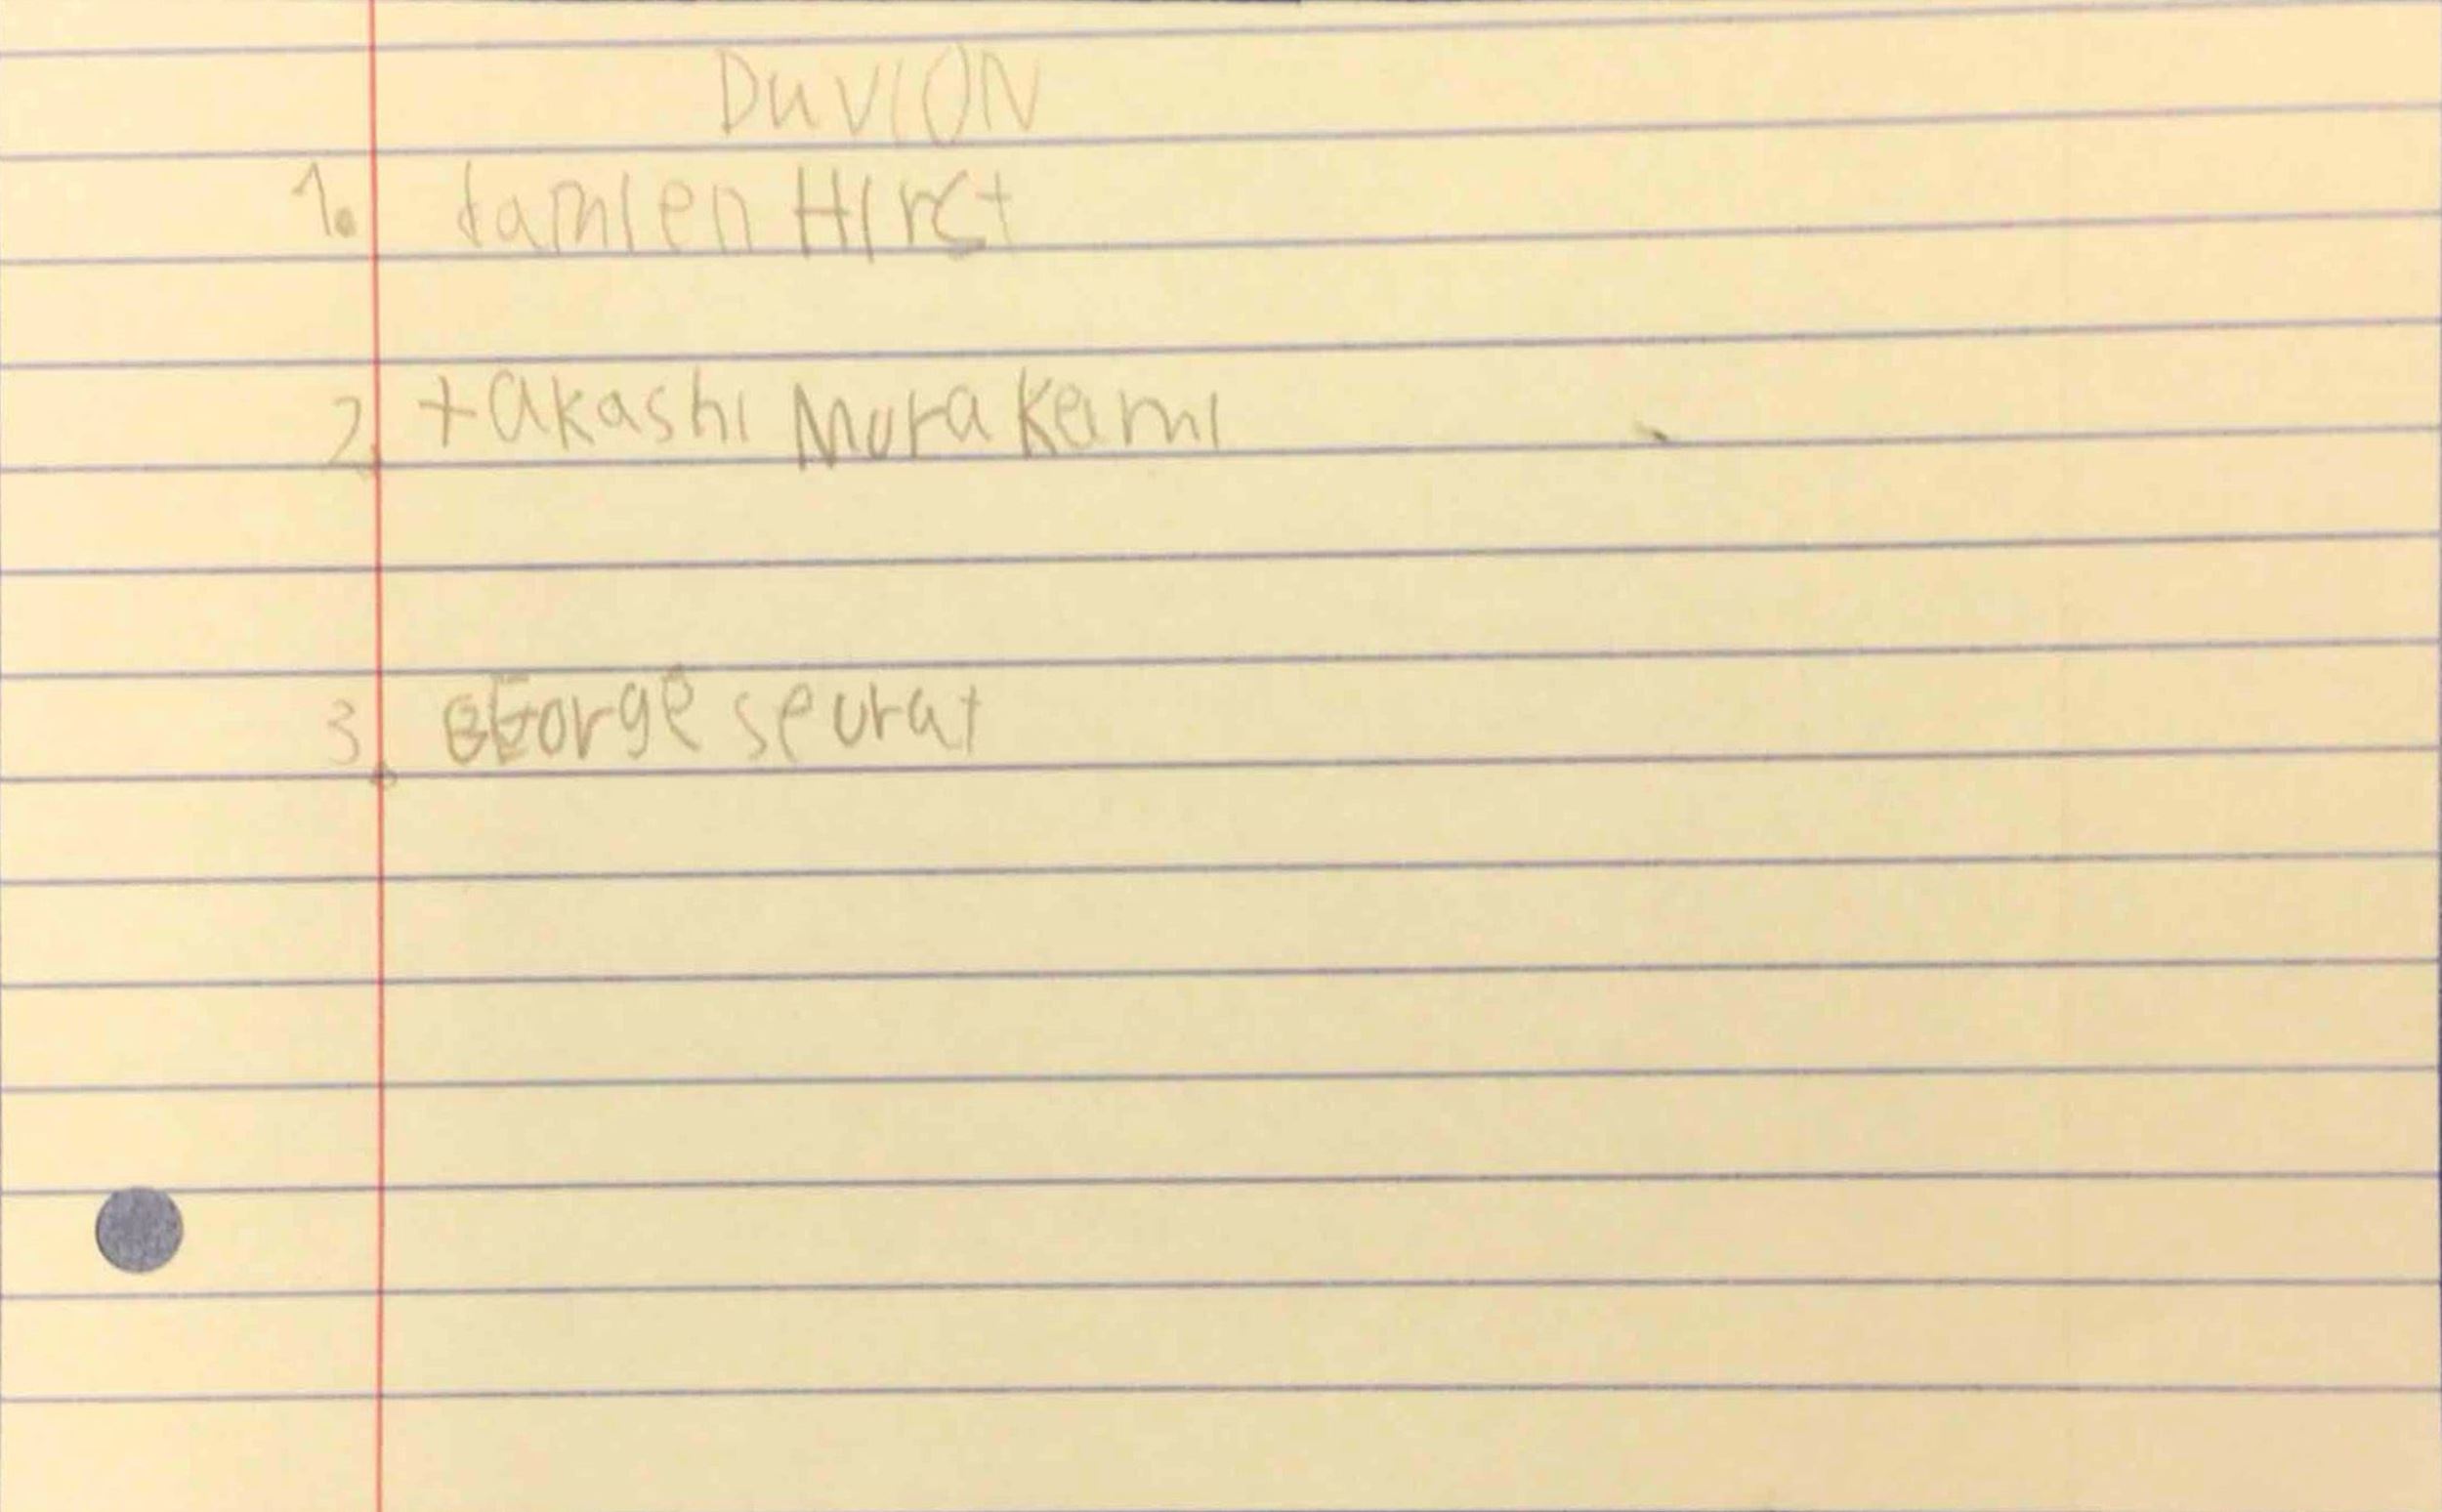 DuviON
1. damien Hirst
2. takashi Murakami
3. GEorge seurat